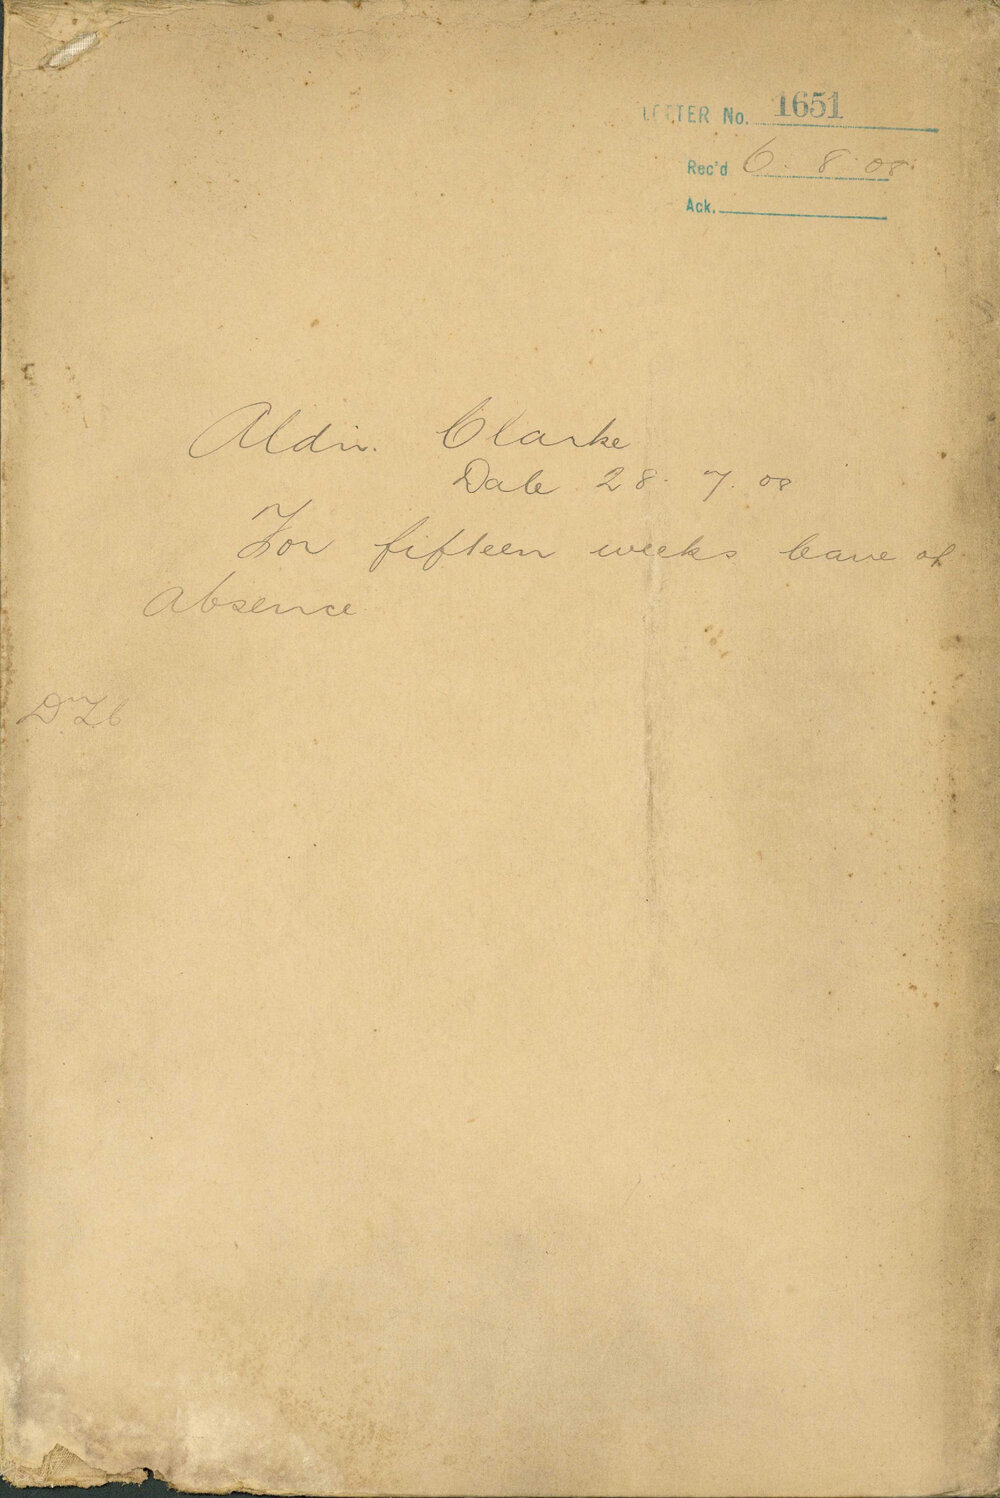 LETTER No. 1651
Rec'd 6. 8. 08.
Ack.
Aldm. Clarke
Date 28. 7. 08
For fifteen weeks leave of
absence